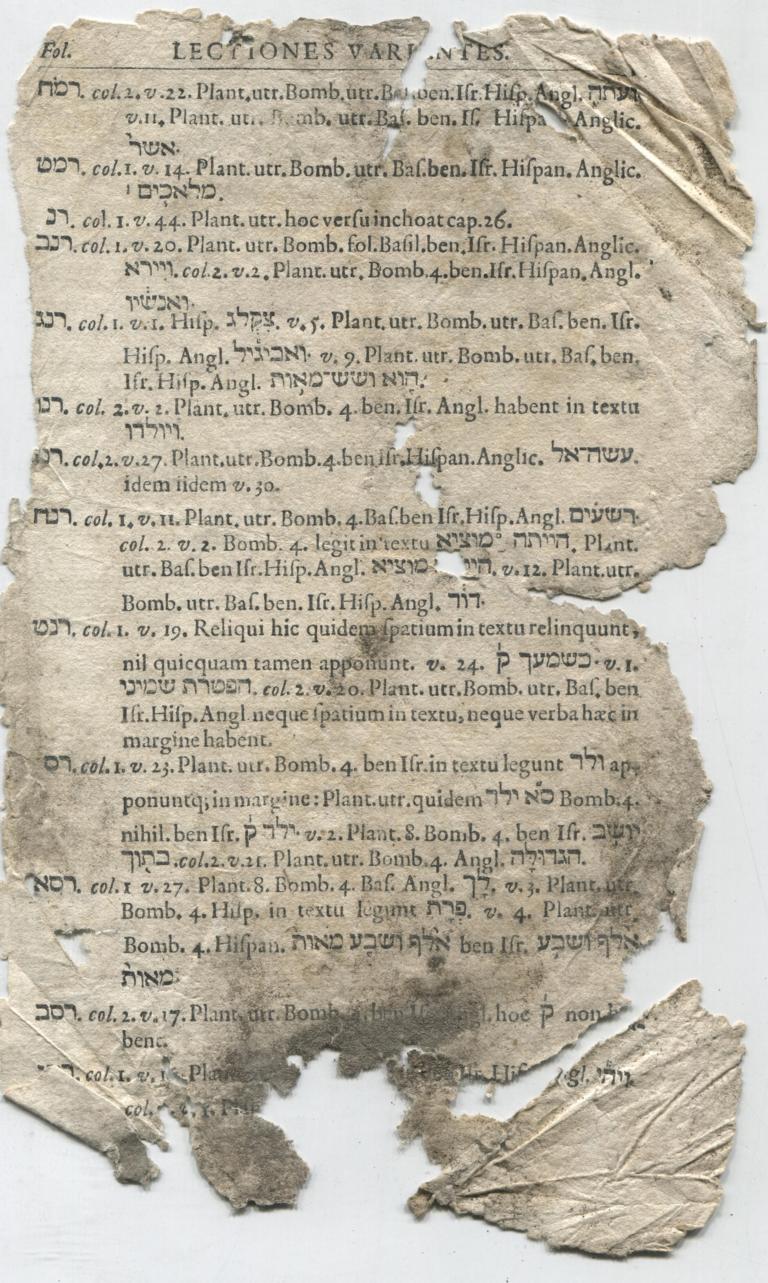 Fol. LECTIONES VARIANTES.
רמח. col. 2. v. 22. Plant. utr. Bomb. utr. Bas. ben. Iſr. Hiſp. Angl. ועתה
v. 11. Plant. utr. Bomb. utr. Baſ. ben. Iſ. Hiſpa Anglic.
אשר
רמט. col. 1. v. 14. Plant. utr. Bomb. utr. Baſ. ben. Iſr. Hiſpan. Anglic.
מלאכים׀.
רנ. col. 1. v. 44. Plant. utr. hoc verſu inchoat cap. 26.
רנב. col. 1. v. 20. Plant. utr. Bomb. fol. Baſil. ben. Iſr. Hiſpan. Anglic.
ויירא. col. 2. v. 2. Plant. utr. Bomb. 4. ben. Iſr. Hiſpan. Angl.
ואנשיו.
רנג. col. 1. v. 1. Hiſp. צקלג. v. 5. Plant. utr. Bomb. utr. Baſ. ben. Iſr.
Hiſp. Angl. ואביגיל. v. 9. Plant. utr. Bomb. utr. Baſ. ben.
Iſr. Hiſp. Angl. הוא ושש־מאות.
col. 2. v. 2. Plant. utr. Bomb. 4. ben. Iſr. Angl. habent in textu
ויולדו.
col. 2. v. 27. Plant. utr. Bomb. 4. ben iſr. Hiſpan. Anglic. עשה־אל.
idem iidem v. 30.
רנח. col. 1. v. 11. Plant. utr. Bomb. 4. Baſ. ben Iſr. Hiſp. Angl. רשעים
col. 2. v. 2. Bomb. 4. legit in textu הייתה מוציא. Plant.
utr. Baſ. ben Iſr. Hiſp. Angl. מוציא. v. 12. Plant. utr.
Bomb. utr. Baſ. ben. Iſr. Hiſp. Angl. דוד.
רנט. col. 1. v. 19. Reliqui hic quidem ſpatium in textu relinquunt,
nil quicquam tamen apponunt. v. 24. כשמעך ק. v. 1.
הפטרת שמיני. col. 2. v. 20. Plant. utr. Bomb. utr. Baſ. ben
Iſr. Hiſp. Angl. neque ſpatium in textu, neque verba hæc in
margine habent.
רס. col. 1. v. 23. Plant. utr. Bomb. 4. ben Iſr. in textu legunt ולד ap-
ponuntq; in margine: Plant. utr. quidem סא ילד Bomb. 4.
nihil. ben Iſr. ילד ק. v. 2. Plant. 8. Bomb. 4. ben Iſr. יושב
בתוך. col. 2. v. 21. Plant. utr. Bomb. 4. Angl. הגדולה.
רסא. col. 1 v. 27. Plant. 8. Bomb. 4. Baſ. Angl. לך. v. 3. Plant. utr
Bomb. 4. Hiſp. in textu legunt פרת. v. 4. Plant. utr.
Bomb. 4. Hiſpan. אלף ושבע מאות ben Iſr. אלף ושבע
מאות
רסב. col. 2. v. 17. Plant. utr. Bomb. 4. ben Angl. hoc ק non
bent.
col. 1. v. Plant Iſr. Hiſ gl. ויהי
col. v.